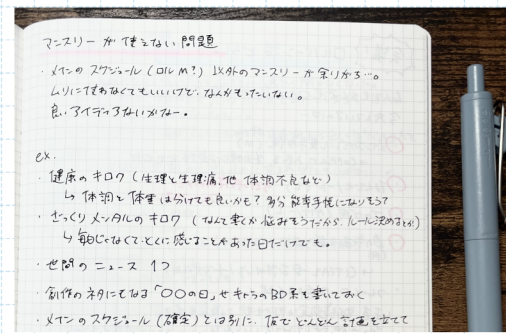 マンスリーが使えない問題
・メインのスケジュール(ロルM?)以外のマンスリーが余りがち…。
ムリに使わなくてもいいけど、なんかもったいない。
良いアイディアないかなー。
ex.
・健康のキロク(生理と生理痛、他 体調不良など)
↳ 体調と体重は分けても良いかも?多分能率手帳になりそう?
・ざっくりメンタルのキロク(なんて書くか悩みそうだから、ルール決めるとか)
↳ 毎日じゃなくて、とくに感じることがあった日だけでも。
・世間のニュース 1つ
・創作のネタにもなる「〇〇の日」やキャラのBD系を書いておく
・メインのスケジュール(確定)とは別に、仮でどんどん計画を立てて